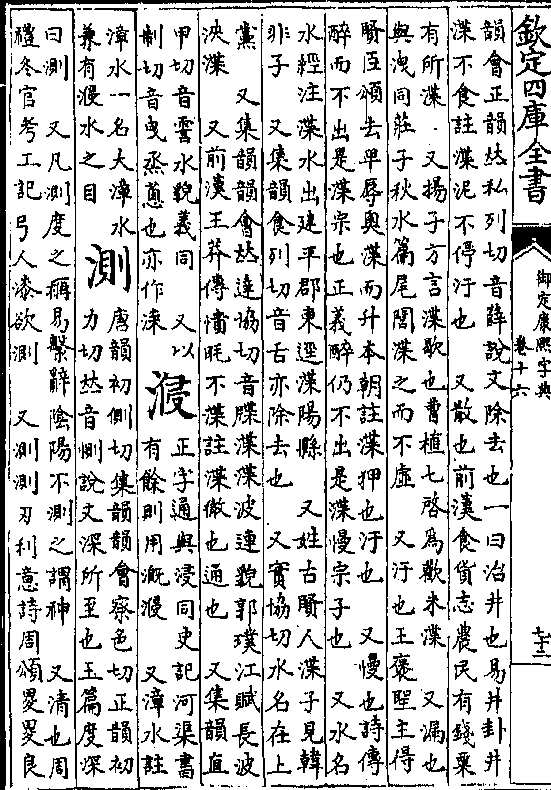 欽定四庫全書
御定康熙字典
卷十六
七十二
韻會正韻𠀤私列切音薛說文除去也一曰治井也易井卦井
渫不食註渫泥不停汙也 又散也前漢食貨志農民有錢粟
有所渫 又揚子方言渫歇也曹植七啓爲歡未渫 又漏也
與洩同莊子秋水篇尾閭渫之而不虛 又汙也王褒聖主得
賢臣頌去卑辱奧渫而升本朝註渫狎也汙也 又慢也詩傳
醉而不出是渫宗也正義醉仍不出是渫慢宗子也 又水名
水經注渫水出建平郡東逕渫陽縣 又姓古賢人渫子見韓
非子 又集韻食列切音舌亦除去也 又實協切水名在上
黨 又集韻韻會𠀤達協切音牒渫渫波連貌郭璞江賦長波
浹渫 又前漢王莽傳憒眊不渫註渫徹也通也 又集韻直
甲切音霅水貌義同 又以
制切音曳烝蔥也亦作㴪
㴆
正字通與浸同史記河渠書
有餘則用溉㴆 又漳水註
漳水一名大漳水
兼有㴆水之目
測
唐韻初側切集韻韻會察色切正韻初
力切𠀤音惻說文深所至也玉篇度深
曰測 又凡測度之稱易繫辭陰陽不測之謂神 又清也周
禮冬官考工記弓人漆欲測 又測測刃利意詩周頌畟畟良